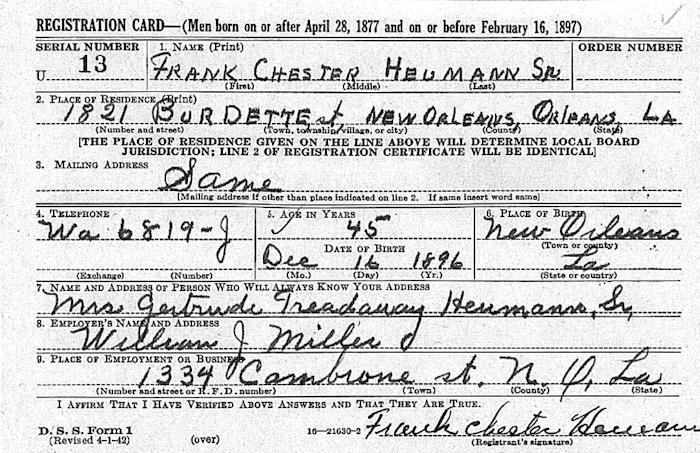 REGISTRATION CARD—(Men born on or after April 28, 1877 and on or before February 16, 1897)
SERIAL NUMBER 1. NAME (Print) ORDER NUMBER
U 13 FRANK CHESTER HEUMANN SR.
(First) (Middle) (Last)
2. PLACE OF RESIDENCE (Print)
1821 BURDETTE st NEW ORLEANS, ORLEANS, LA
(Number and street) (Town, township, village, or city) (County) (State)
[THE PLACE OF RESIDENCE GIVEN ON THE LINE ABOVE WILL DETERMINE LOCAL BOARD
JURISDICTION; LINE 2 OF REGISTRATION CERTIFICATE WILL BE IDENTICAL]
3. MAILING ADDRESS
Same
[Mailing address if other than place indicated on line 2. If same insert word same]
4. TELEPHONE 5. AGE IN YEARS 6. PLACE OF BIRTH
Wa 6819-J 45 New Orleans
DATE OF BIRTH (Town or county)
Dec 16 1896 La
(Exchange) (Number) (Mo.) (Day) (Yr.) (State or country)
7. NAME AND ADDRESS OF PERSON WHO WILL ALWAYS KNOW YOUR ADDRESS
Mrs Gertrude Treadaway Heumann, Sr,
8. EMPLOYER'S NAME AND ADDRESS
William J Miller
9. PLACE OF EMPLOYMENT OR BUSINESS
1334 Cambrone st. N. O, La
(Number and street or R. F. D. number) (Town) (County) (State)
I AFFIRM THAT I HAVE VERIFIED ABOVE ANSWERS AND THAT THEY ARE TRUE.
D. S. S. Form 1 16—21630-2 Frank Chester Heumann
(Revised 4-1-42) (over) (Registrant's signature)